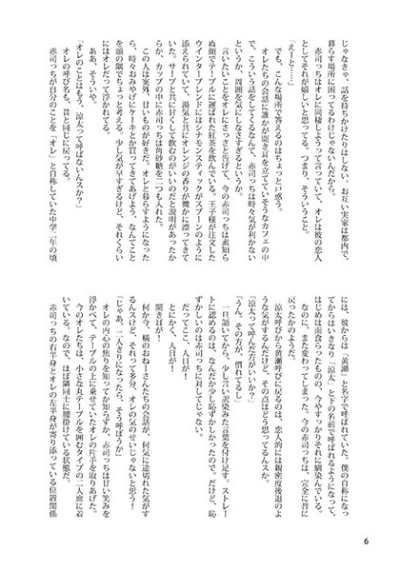 じゃなきゃ、話を持ちかけたりはしない。お互い実家は都内で、
暮らす場所に困ってるわけじゃないんだから。
赤司っちはオレに同棲しようって言っていて、オレは彼の恋人
としてそれが嬉しいと思ってる。つまり、そういうこと。
「えーと……」
でも、こんな場所で答えるのはちょっと戸惑う。
オレたちの会話に誰かが聞き耳を立てていそうなカフェの中
で、こういう話をしてくるなんて、赤司っちは時々気が利かない
というか、周囲を気にしなさすぎるというか。
言いたいことをオレにさっさと告げて、今の赤司っちは素知ら
ぬ顔でテーブルに運ばれた紅茶を飲んでいる。王子様が注文した
ウインターブレンドにはシナモンスティックがスプーンのように
添えられていて、湯気と共にオレンジの香りが微かに漂ってきて
いた。サーブと共に甘くして飲むのがいいのだと説明があったか
らか、カップの中に赤司っちは角砂糖を二つも入れた。
この人は案外、甘いものが好きだ。オレと暮らすようになった
ら、時々おみやげにケーキとか買ってきてあげよう、なんてこと
を頭の隅でちょっと考える。少し気が早すぎるけど、それくらい
にはオレだって浮かれてる。
ああ、そういや。
「オレのことはもう、涼太って呼ばないんスか？」
オレの呼び名も、昔と同じに戻ってる。
赤司っちが自分のことを「オレ」と自称していた中学二年の頃
には、彼からは「黄瀬」と名字で呼ばれていた。僕の自称になっ
てからはいきなり「涼太」と下の名前で呼ばれるようになって、
はじめは面食らったものの、今やすっかりそれに馴染んでいる。
なのに、また変わってしまった。今の赤司っちは、完全に昔に
戻ったかのようだ。
涼太呼びから黄瀬呼びに戻るのは、恋人的には親密度後退のよ
うな気がするんだけど、その点はどう思ってるんスか。
「涼太って呼んだ方がいいか？」
「うん、その方が、慣れてるし」
一旦頷いてから、少し言い訳染みた言葉を付け足す。ストレー
トに認めるのは、なんだか少し恥ずかしかったので。だけど、恥
ずかしいのは赤司っちに対してじゃない。
だってここ、人目が！
とにかく、人目が！
聞き耳が！
何か今、横のおねーさんたちの会話が、何気に途切れた気がす
るんスけど、それって多分、オレの気のせいじゃないと思う！
「じゃあ、二人きりになったら、そう呼ぼうか」
オレの内心の焦りを知ってか知らずか、赤司っちは甘い笑みを
浮かべて、テーブルの上に乗せていたオレの片手を取りあげた。
今のオレたちは、小さな丸テーブルを囲むタイプの二人席に着
いている。なので、ほぼ隣同士に腰掛けている状態だ。
赤司っちの右半身とオレの左半身が寄り添っている位置関係
6